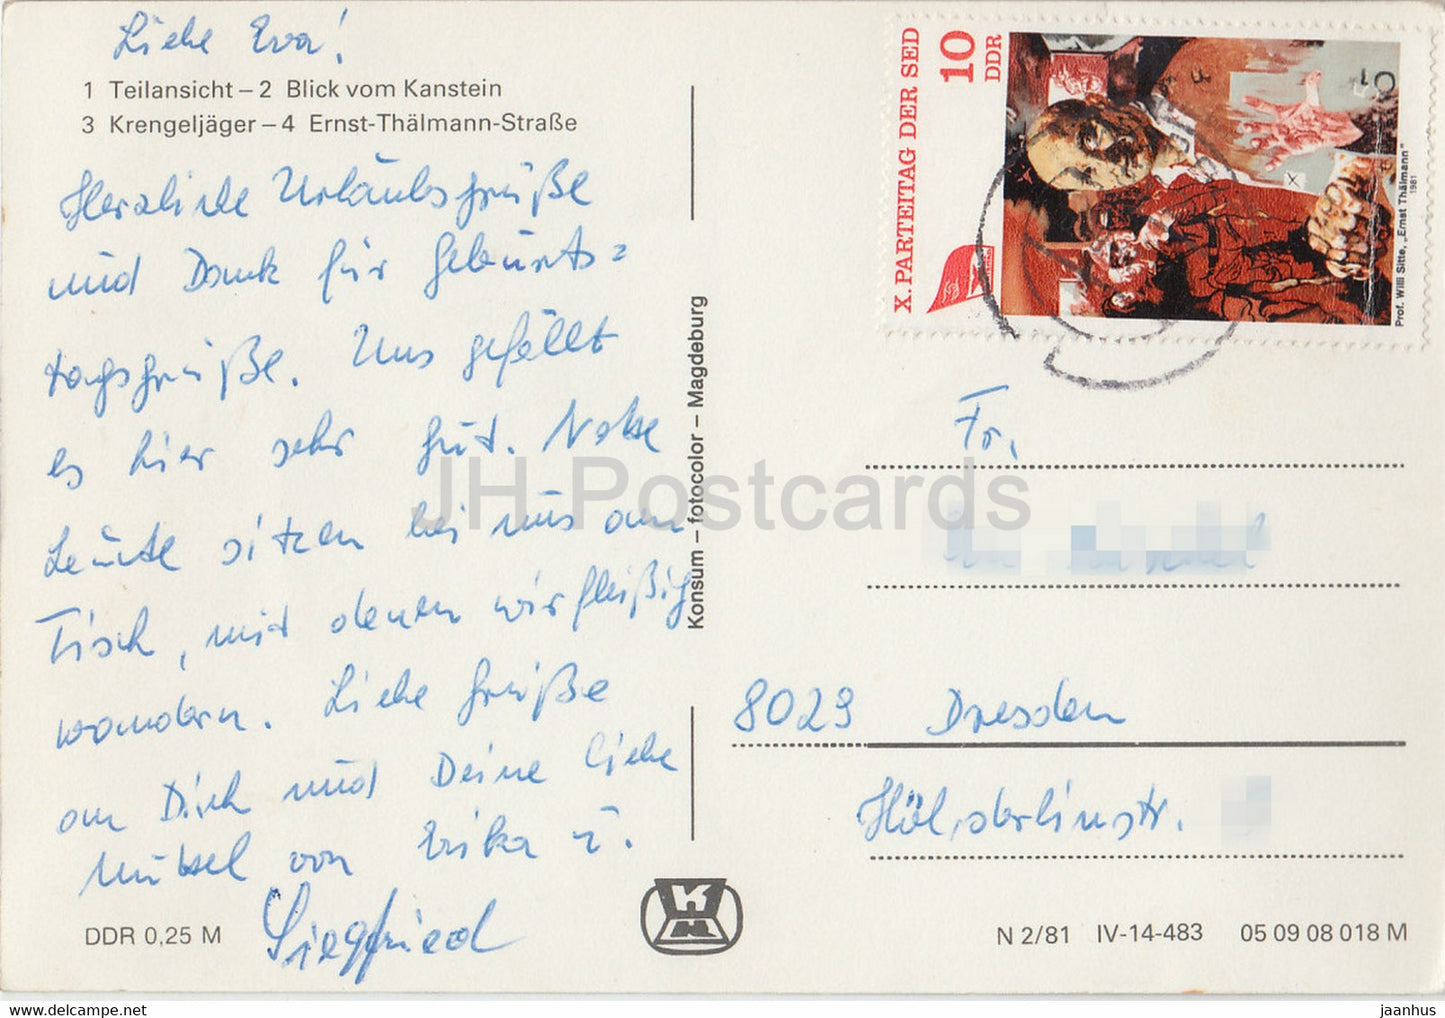 Liebe Eva!
1 Teilansicht – 2 Blick vom Kanstein
3 Krengeljäger – 4 Ernst-Thälmann-Straße
Herzliche Urlaubsgrüße
und Dank für Geburts=
tagsgrüße. Uns gefällt
es hier sehr gut. Nette
Leute sitzen bei uns am
Tisch, mit denen wir fleißig
wandern. Liebe Grüße
an Dich und Deine liebe
von Erika u.
Siegfried
DDR 0,25 M
Konsum – fotocolor – Magdeburg
X. PARTEITAG DER SED
10
DDR
Prof. Willi Sitte, „Ernst Thälmann"
1981
Fr.
8023 Dresden
Hölderlinstr.
N 2/81 IV-14-483 05 09 08 018 M
JH Postcards
https://www.jaanhus.com/
jaanhus